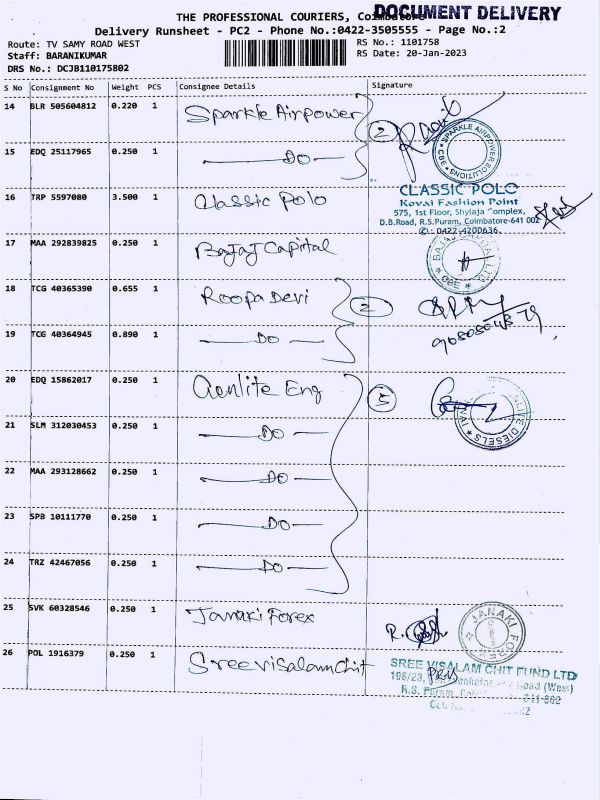 THE PROFESSIONAL COURIERS, Coimbatore
DOCUMENT DELIVERY
Delivery Runsheet - PC2 - Phone No.:0422-3505555 - Page No.:2
Route: TV SAMY ROAD WEST
RS No.: 1101758
Staff: BARANIKUMAR
RS Date: 20-Jan-2023
DRS No.: DCJB110175802
S No Consignment No Weight PCS Consignee Details Signature
14 BLR 505604812 0.220 1 Sparkle Airpower 2
SPARKLE AIRPOWER SOLUTIONS CBE
15 EDQ 25117965 0.250 1 DO
16 TRP 5597080 3.500 1 Classic Polo
CLASSIC POLO
Kovai Fashion Point
575, 1st Floor, Shylaja Complex,
D.B.Road, R.S.Puram, Coimbatore-641 002
✆: 0422-4200636
17 MAA 292839825 0.250 1 Bajaj Capital
BAJAJ CAPITAL LTD CBE
18 TCG 40365390 0.655 1 Roopa Devi 2
19 TCG 40364945 0.890 1 DO
20 EDQ 15862017 0.250 1 Eng 5
DIESELS
21 SLM 312030453 0.250 1 DO
22 MAA 293128662 0.250 1 DO
23 SPB 10111770 0.250 1 DO
24 TRZ 42467056 0.250 1 DO
25 SVK 60328546 0.250 1 Janaki Forex
JANAKI FOREX
26 POL 1916379 0.250 1 Sree visalam chit
SREE VISALAM CHIT FUND LTD
196/23, Road (West)
R.S. Puram,